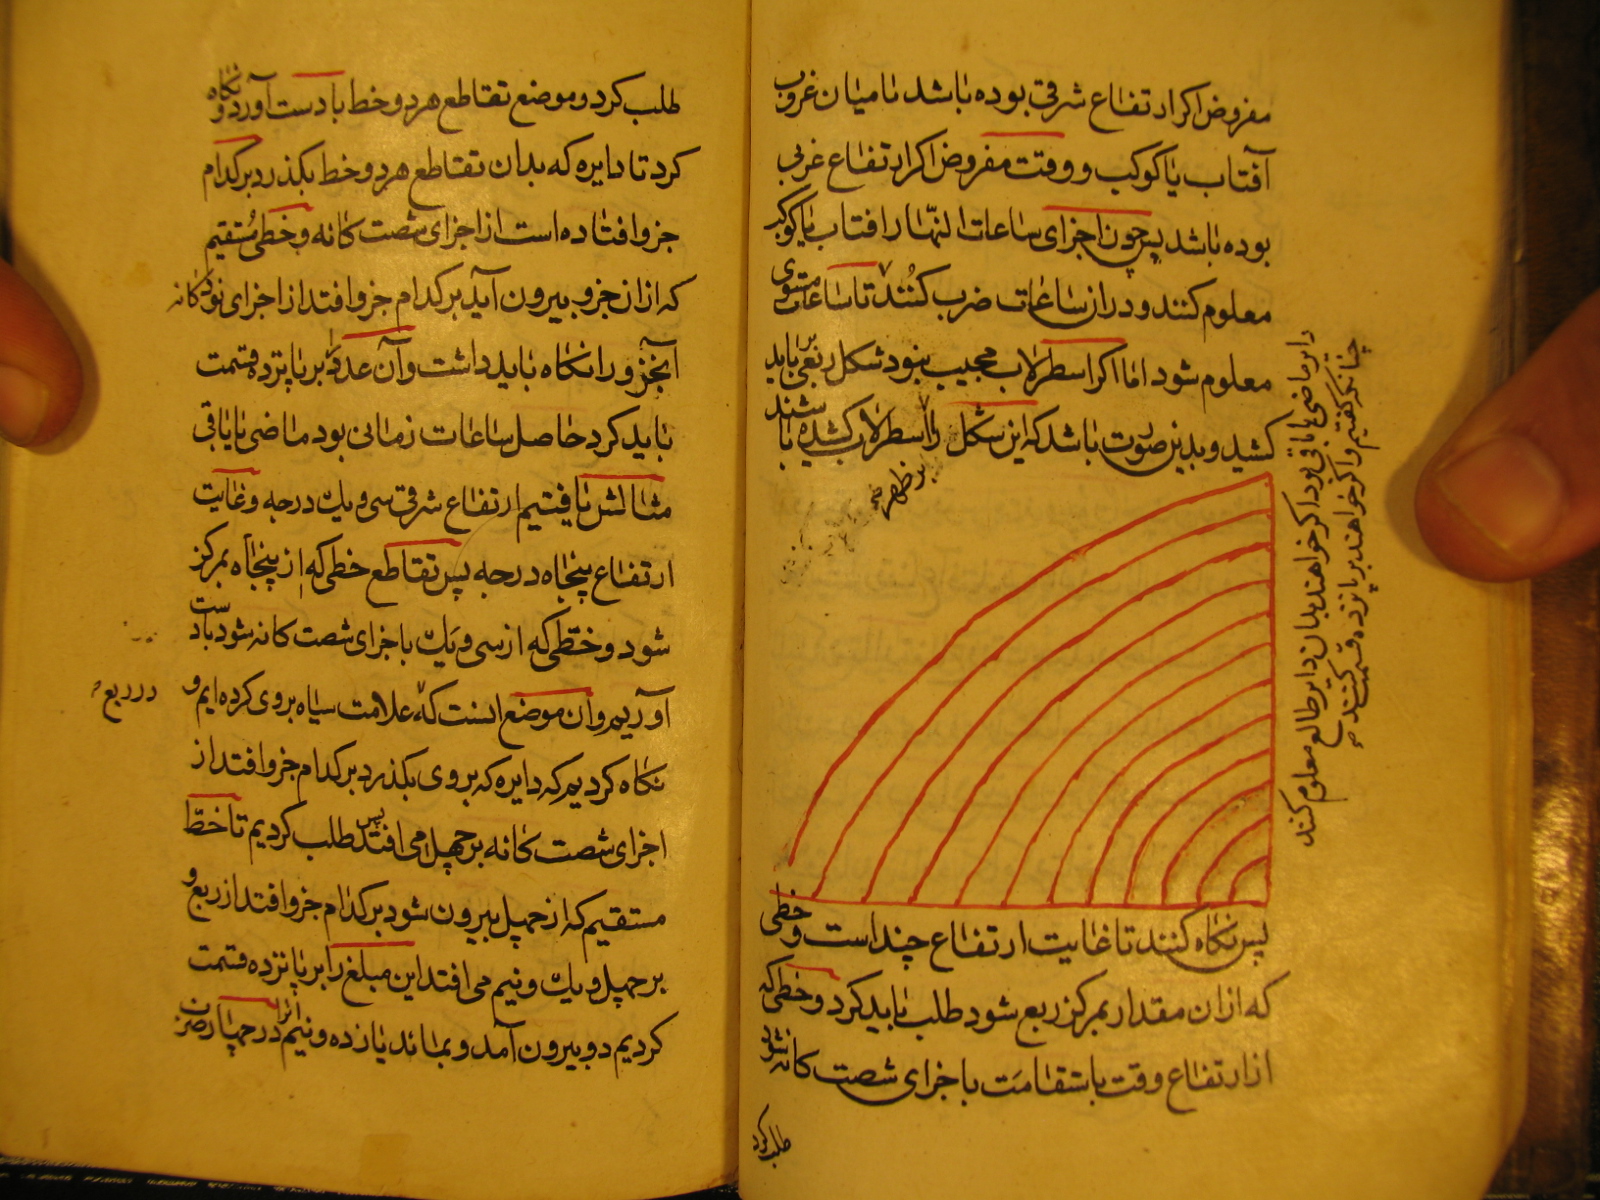 مفروض اکر ارتفاع شرقی بوده باشد تا میان غروب
آفتاب یا کوکب و وقت مفروض اکر ارتفاع غربی
بوده باشد پس چون اجزای ساعات النهار افتاب یا کوکب
معلوم کنند و در ان ساعات ضرب کنند تا ساعات مستوی
معلوم شود اما اکر اسطرلاب مجیب نبود شکل ربعی بر باید
کشید و بدین صورت باشد که این شکل را بر ظهر اسطرلاب کشیده باشند
پس نکاه کنند تا غایت ارتفاع چند است و خطی
که از ان مقدار بمرکز ربع شود طلب باید کرد و خطی که
از ارتفاع وقت باستقامت با جزای شصت کانه شود
طلب کرد
دایر ماضی یا باقی بود اکر خواهند بدان دایر طالع معلوم کنند
چنانکه کفتیم و اکر خواهند بر پانزده قسمت کنند
طلب کرد و موضع تقاطع هر دو خط با دست آورد و نکاه
کرد تا دایره که بدان تقاطع هر دو خط بکذرد بر کدام
جزو افتاده است از اجزای شصت کانه و خطی مستقیم
که از ان جزو بیرون آید بر کدام جزو افتد از اجزای نود کانه
آنجزو را نکاه باید داشت و آن عدد را بر پانزده قسمت
باید کرد حاصل ساعات زمانی بود ماضی یا باقی
مثالش یافتیم ارتفاع شرقی سی و یک درجه و غایت
ارتفاع پنجاه درجه پس تقاطع خطی که از پنجاه بمرکز
شود و خطی که از سی و یک با جزای شصت کانه شود بادست
آوردیم و ان موضع انست که علامت سیاه بروی کرده ایم و
در ربع
نکاه کردیم که دایره که بروی بکذرد بر کدام جزو افتد از
اجزای شصت کانه بر چهل می افتد پس طلب کردیم تا خط
مستقیم که از چهل بیرون شود بر کدام جزو افتد از ربع و
بر چهل و یک و نیم می افتد این مبلغ را بر پانزده قسمت
کردیم دو بیرون آمد و بماند یازده و نیم انرا در چهار ضرب